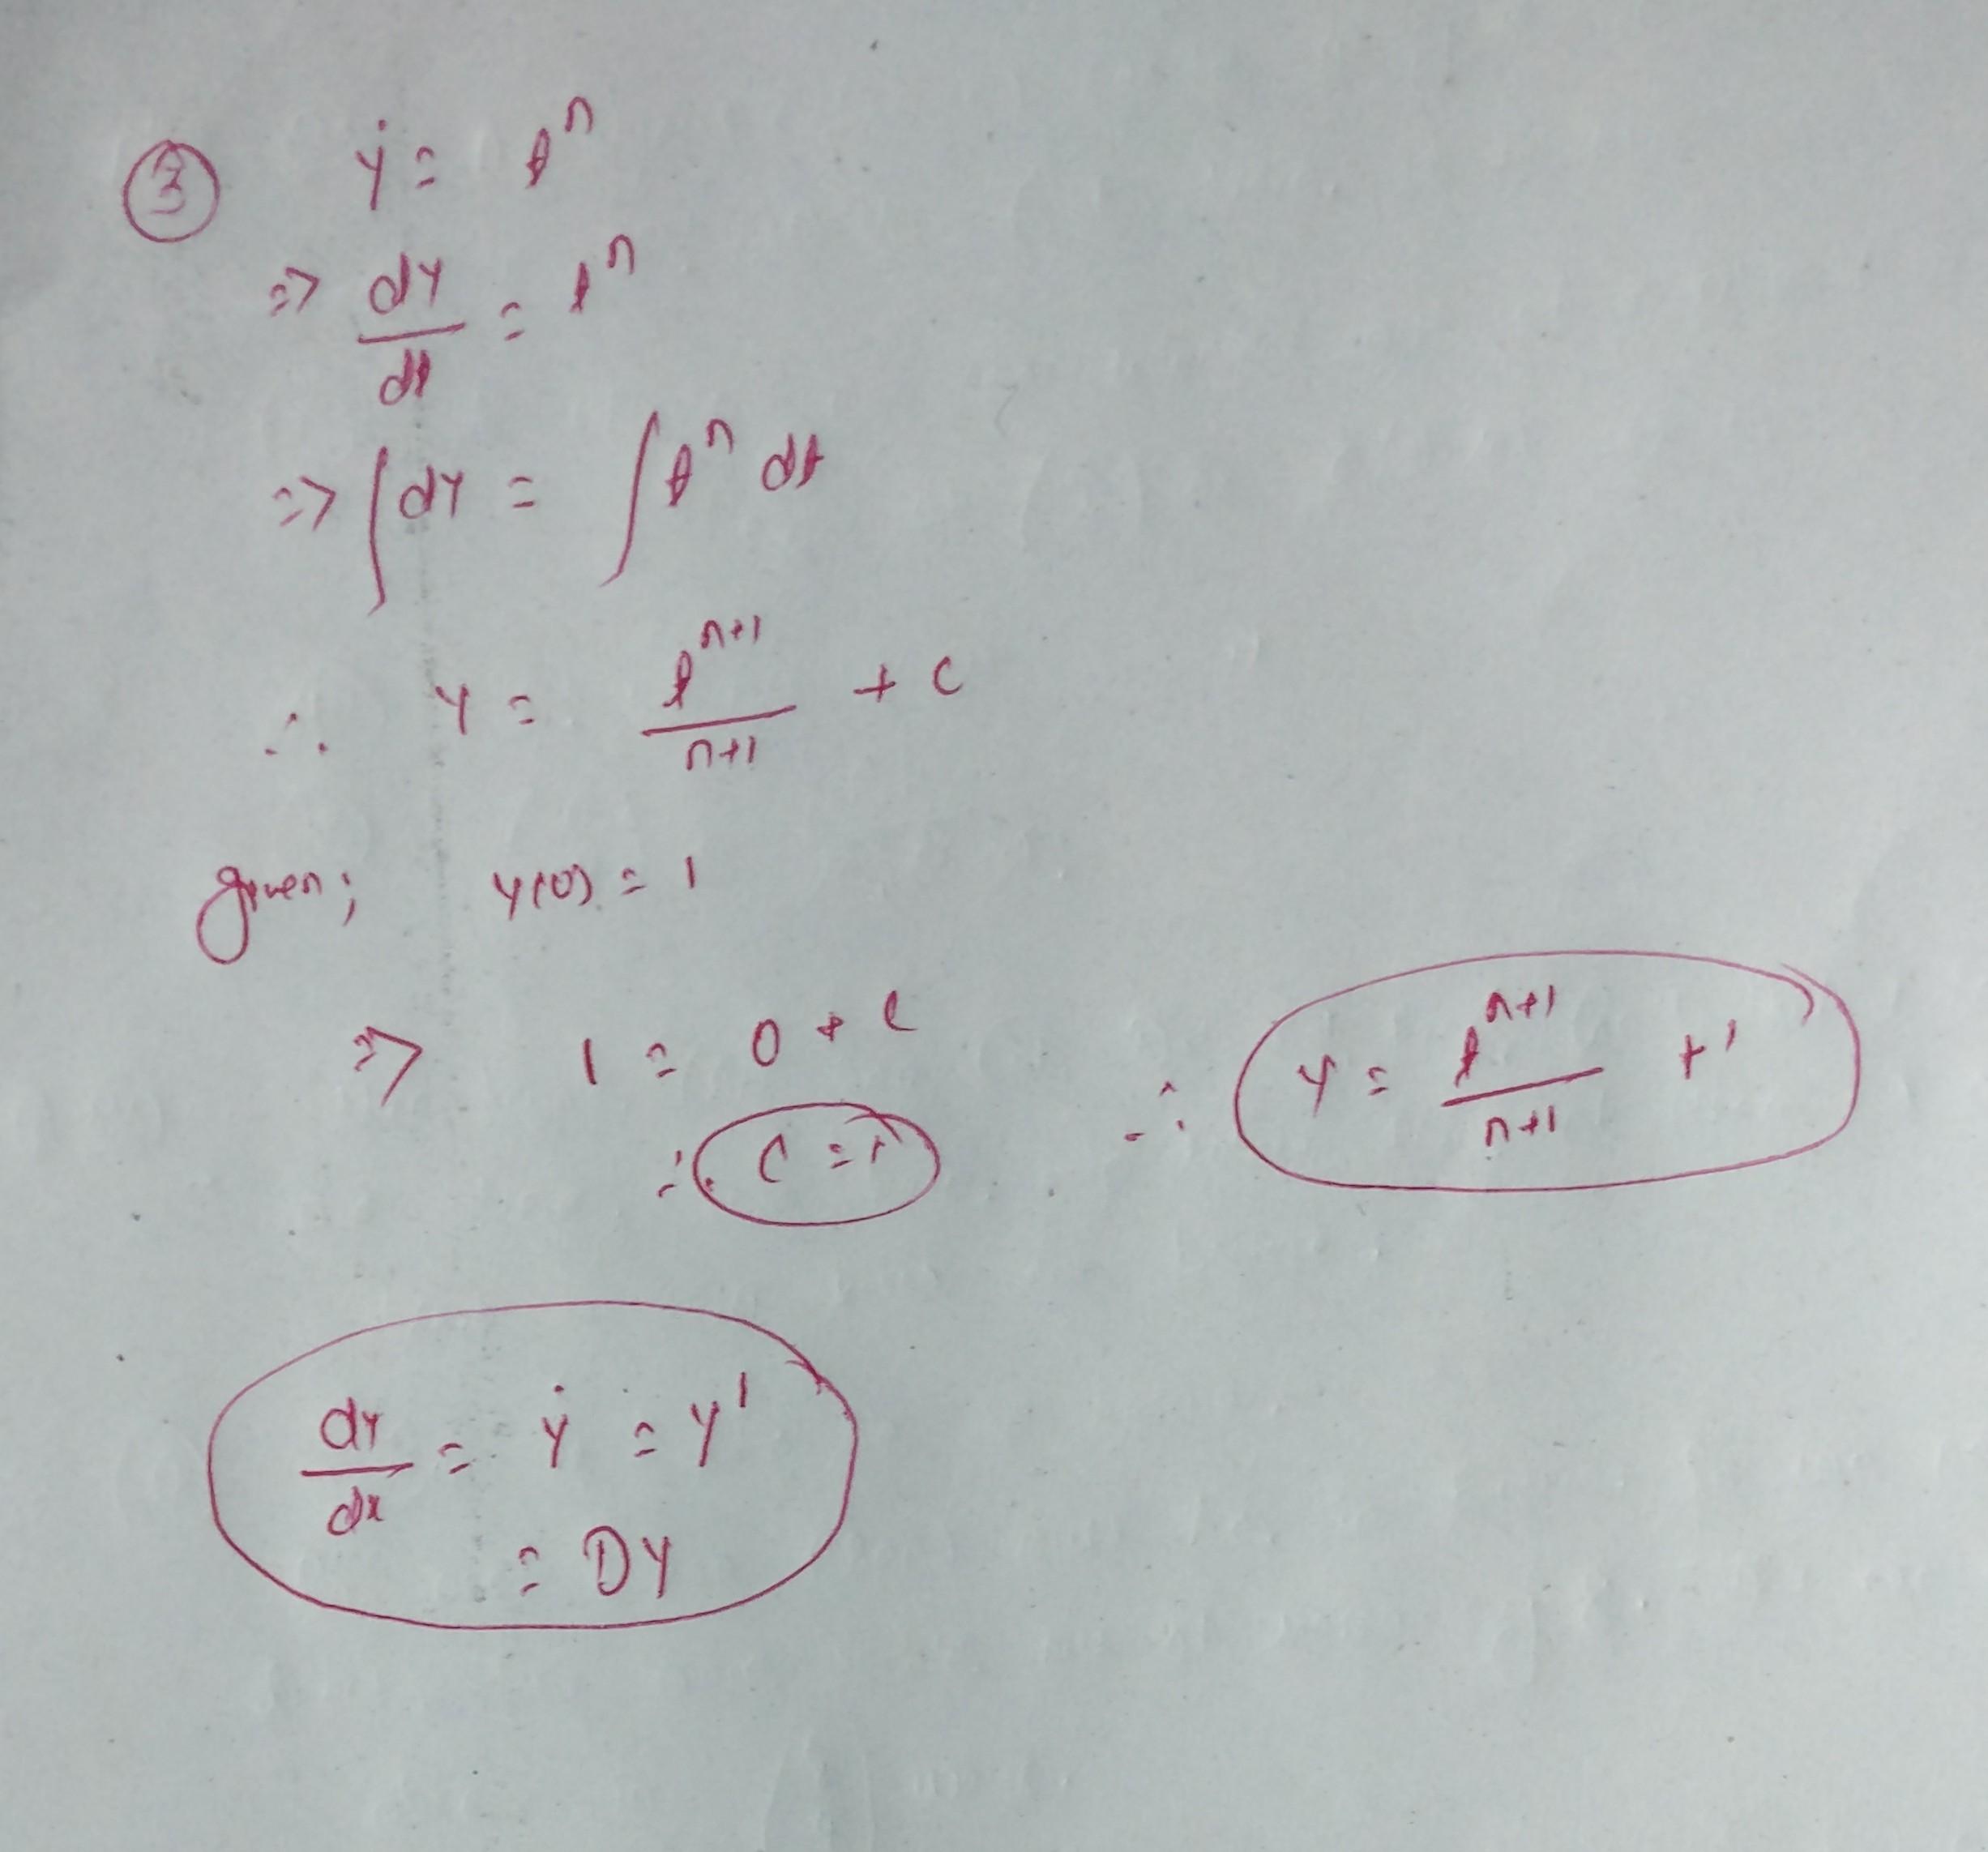 ③ ẏ = t^n
=> dy/dt = t^n
=> ∫dy = ∫t^n dt
∴ y = t^(n+1)/(n+1) + c
given; y(0) = 1
=> 1 = 0 + c
∴ c = 1
∴ y = t^(n+1)/(n+1) + 1
dy/dx = ẏ = y'
= Dy